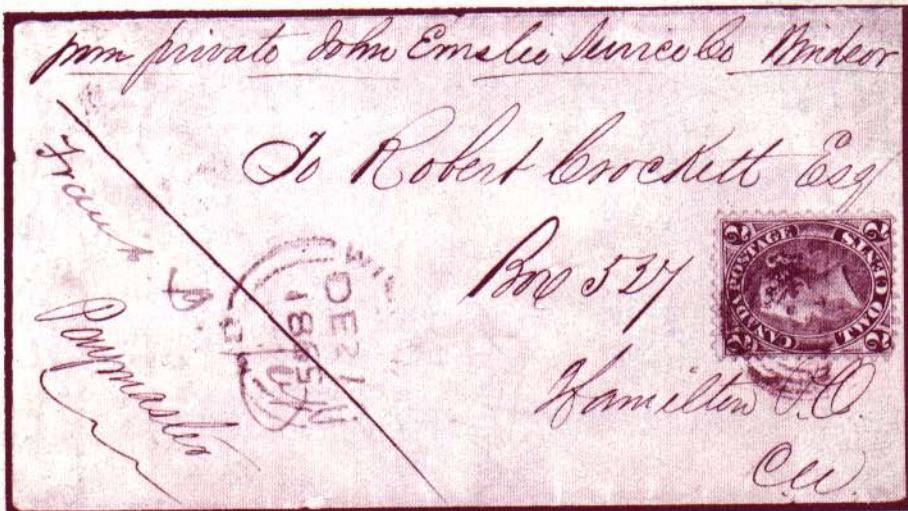 from private John Emslie Service Co Windsor
To Robert Crockett Esq
Box 527
Hamilton P.O.
C.W.
Frank D.
Paymaster
CANADA POSTAGE
TWO CENTS
2 2 2 2
DE 21
1865